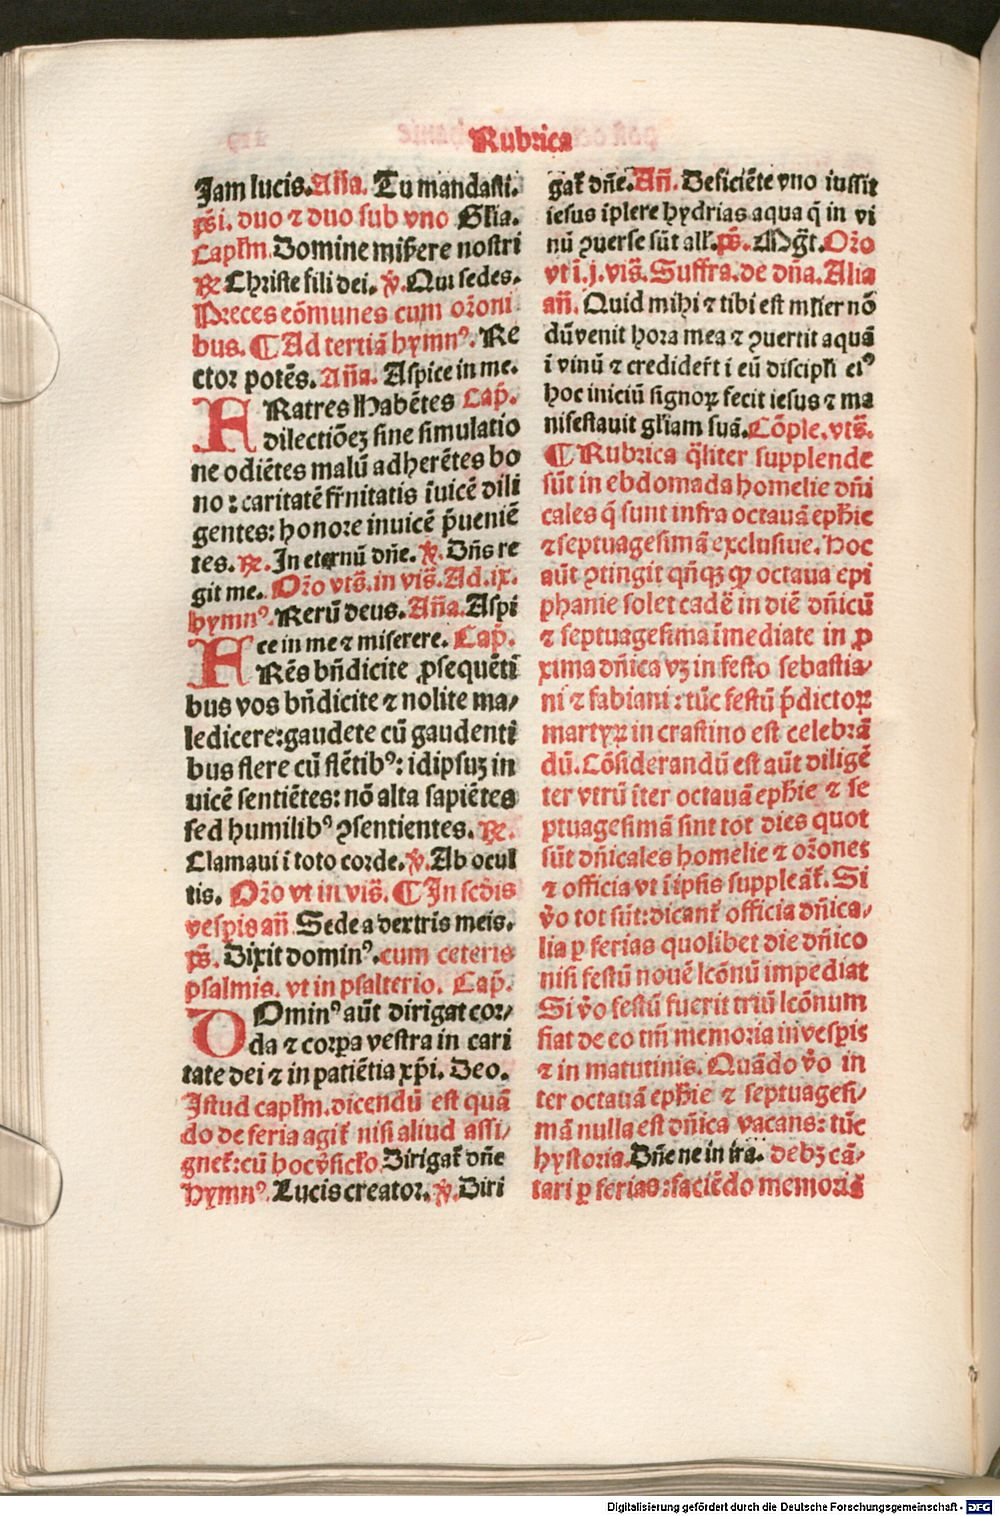 Rubrica
Jam lucis. Añа. Tu mandasti.
ps̄ i. duo ⁊ duo sub vno Glīa.
Capl̄m. Domine mis̄ere nostri
℞ Christe fili dei. ℣. Qui sedes.
Preces cōmunes cum or̄oni
bus. ¶ Ad tertiā hymnꝰ. Re
ctor potēs. Añа. Aspice in me.
FRatres Habētes Cap̄.
dilectiōeꝫ sine simulatio
ne odiētes malū adherētes bo
no: caritatē fr̄nitatis īuicē dili
gentes: honore inuicē p̄ueniē
tes. ℞. In eternū dn̄e. ℣. Dn̄s re
git me. Or̄o vts̄. in vis̄. Ad .ix.
hymnꝰ. Rerū deus. Añа. Aspi
ce in me ⁊ miserere. Cap̄.
FRēs bn̄dicite ꝓsequēti
bus vos bn̄dicite ⁊ nolite ma/
ledicere: gaudete cū gaudenti
bus flere cū flētibꝰ: idipsuꝫ in
uicē sentiētes: nō alta sapiētes
sed humilibꝰ ꝯsentientes. ℞.
Clamaui ī toto corde. ℣. Ab ocul
tis. Or̄o vt in vis̄. ¶ In scd̄is
vesp̄is an̄ Sede a dextris meis.
ps̄. Dixit dominꝰ. cum ceteris
psalmis. vt in psalterio. Cap̄.
DOminꝰ aūt dirigat cor/
da ⁊ corꝑa vestra in cari
tate dei ⁊ in patiētia xp̄i. Deo.
Istud capl̄m. dicendū est quā
do de feria agit̄ nisi aliud assi/
gnet̄: cū hoc v̄sicl̄o. Dirigat̄ dn̄e
Hymnꝰ. Lucis creator. ℣. Diri
gat̄ dn̄e. An̄. Deficiēte vno iussit
iesus īplere hydrias aqua q̄ in vi
nū ꝯuerse sūt all̄. ps̄. Mg̅t. Or̄o
vt ī .j. vis̄. Suffra. de dn̄a. Alia
an̄. Quid mihi ⁊ tibi est ml̄ier nō
dū venit hora mea ⁊ ꝯuertit aquā
ī vinū ⁊ credider̄t ī eū discipl̄i eiꝰ
hoc iniciū signoꝝ fecit iesus ⁊ ma
nifestauit gl̄iam suā. Cōple. vts̄.
¶ Rubrica q̄liter supplende
sūt in ebdomada homelie dn̄i
cales q̄ sunt infra octauā eph̄ie
⁊ septuagesimā exclusiue. Hoc
aūt ꝯtingit qn̄qꝫ ꝙ octaua epi
phanie solet cadē in diē dn̄icū
⁊ septuagesima īmediate in ꝓ
xima dn̄ica vꝫ in festo sebastia/
ni ⁊ fabiani: tūc festū p̄dictoꝝ
martyꝝ in crastino est celebrā
dū. Cōsiderandū est aūt diligē
ter vtrū īter octauā eph̄ie ⁊ se
ptuagesimā sint tot dies quot
sūt dn̄icales homelie ⁊ or̄ones
⁊ officia vt ī ip̄is suppleāt̄. Si
v̄o tot sūt: dicant̄ officia dn̄ica/
lia ꝑ ferias quolibet die dn̄ico
nisi festū nouē lcōnū impediat
Si v̄o festū fuerit triū lcōnum
fiat de eo tm̄ memoria in vesp̄is
⁊ in matutinis. Quādo v̄o in
ter octauā eph̄ie ⁊ septuagesi/
mā nulla est dn̄ica vacans: tūc
hystoria. Dn̄e ne in ira. debꝫ cā/
tari ꝑ ferias: faciēdo memoriā
Digitalisierung gefördert durch die Deutsche Forschungsgemeinschaft - DFG